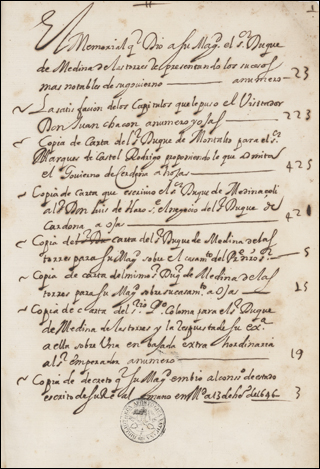 El Memorial q̃ Dio a su Mag.d el s.r Duque
de Medina de las torres representando los sucesos
mas notables de su govierno anumero 23
La satisfacion de los Capitulos que le puso el Visitador
Don Juan chacon anumero y ojas 223
Copia de Carta del s.r Duque de Montalto para el s.r
Marques de Castel Rodrigo proponiendo lo que
el Govierno de Cerdeña a hojas 425
Copia de Carta que escrivio el s.r Duque de Medinaçeli
al s.r Don luis de Haro s.e el negocio del s.r Duque de
Cardona a ojas 42
Copia de carta del s.r Duque de Medina de las
torres para su Mag.d sobre el casam.to del 5
Copia de carta del mismo Duq. de Medina de las
torres para su Mag.d sobre su casam.to a ojas 15
Copia de carta del s.r P.o Colona para el s.r Duque
de Medina de las torres y la respuesta de su ex.a
a ella sobre Una embajada extrahordinaria
al s.r emperador anumero 19
Copia de decreto q̃ su Mag.d embio al cons.o de estado
escrito de su R.l mano en M.d a 13 de de 1646 3